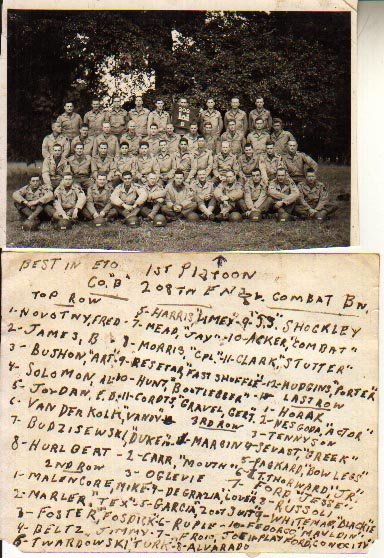 BEST IN ETO. 1ST PLATOON
CO. "B" 208TH ENGR. COMBAT BN.
TOP ROW 5-HARRIS "LIMEY" 9-"S.S." SHOCKLEY
1-NOVOTNY, FRED - 7-MEAD, "JAY" 10-ACKER, "COMBAT"
2-JAMES, B 8-MORRIS, "CPL." 11-CLARK, "STUTTER"
3-BUSHON, "ART" 9-RESETAR, FAST SHUFFLE 12-HUDGINS, "PORTER"
4-SOLOMON, AL 10-HUNT, BOOTLEGGER LAST ROW
5-JORDAN, F.B. 11-CORDTS "GRAVEL GERT" 1-HOAAK
6-VAN DER KOLK, VANNY 3RD ROW 2-NESGODA "ACTOR"
7-BUDZISEWSKI, "DUKE" 1-MARGIN 3-TENNYSON
8-HURLGERT 2-CARR, "MOUTH" 4-SEVAST "GREEK"
2ND ROW 3-OGLEVIE 5-PACKARD, "BOW LEGS"
1-MALENCORE, MIKE 4-DEGRAZIA, LOVER 6-LT. THORWARD "J.P."
2-MARLER "TEX" 5-GARCIA, ZOOT SUIT 7-FORD, JESSE
3-FOSTER, "FOSDICK" 6-RUPLE 8-RUSSOLI
4-BELTZ, "JIMMY" 7- 9-WHITEMAN, BLACKIE
5-TWARDOWSKI, "TURK" 8-ALVARADO 10-FEDORSO, MAULDIN